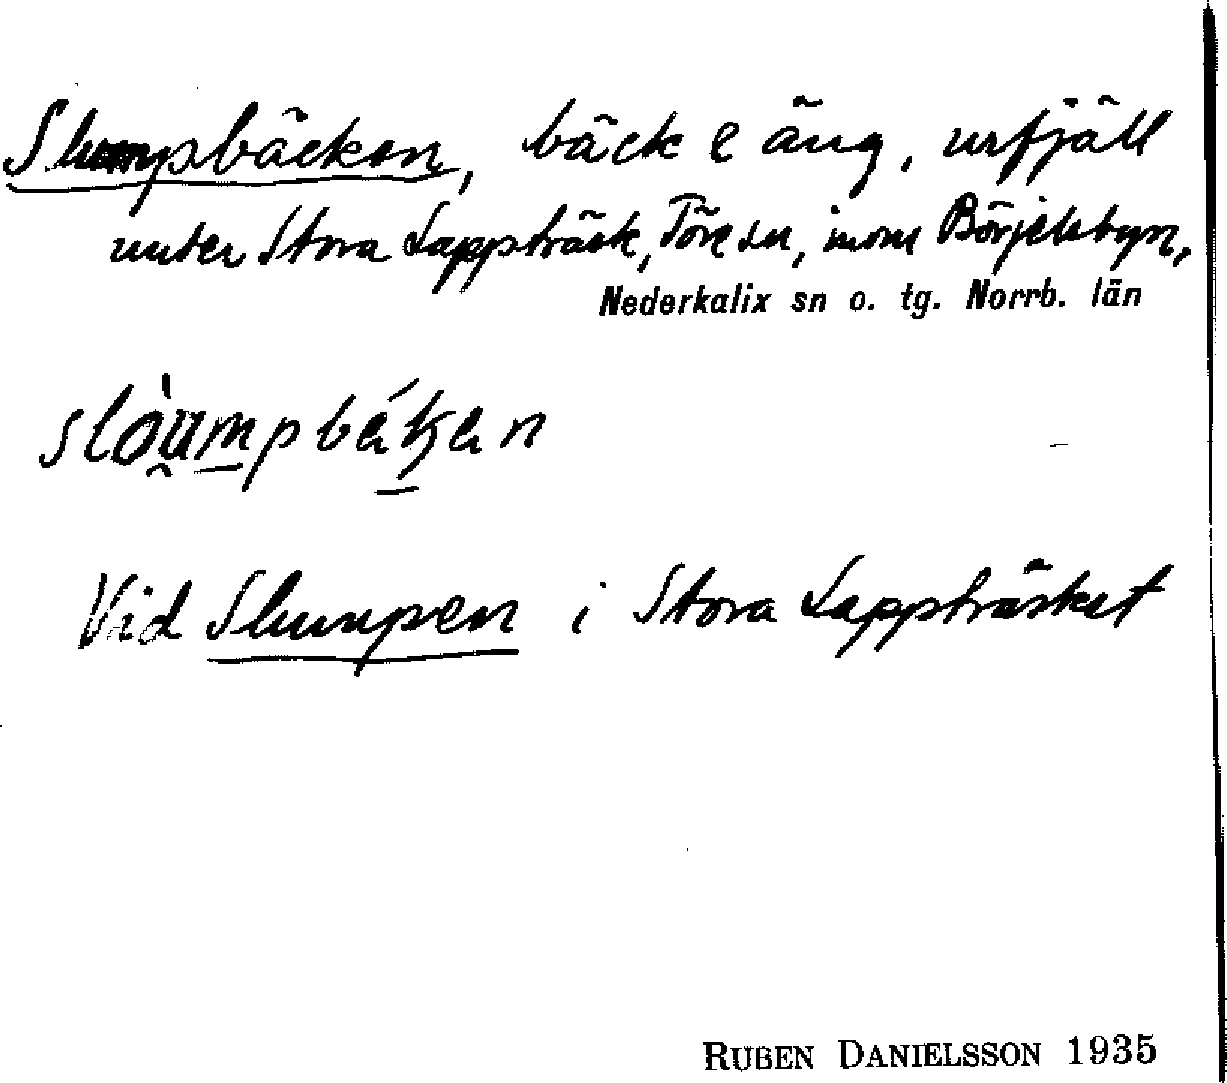 Slumpbäcken, bäck o äng, urfjäll
under Stora Lappträsk, Töre sn, inom Börjelsbyn,
Nederkalix sn o. tg. Norrb. län
slòumpbákan
Vid Slumpen i Stora Lappträsket
RUBEN DANIELSSON 1935